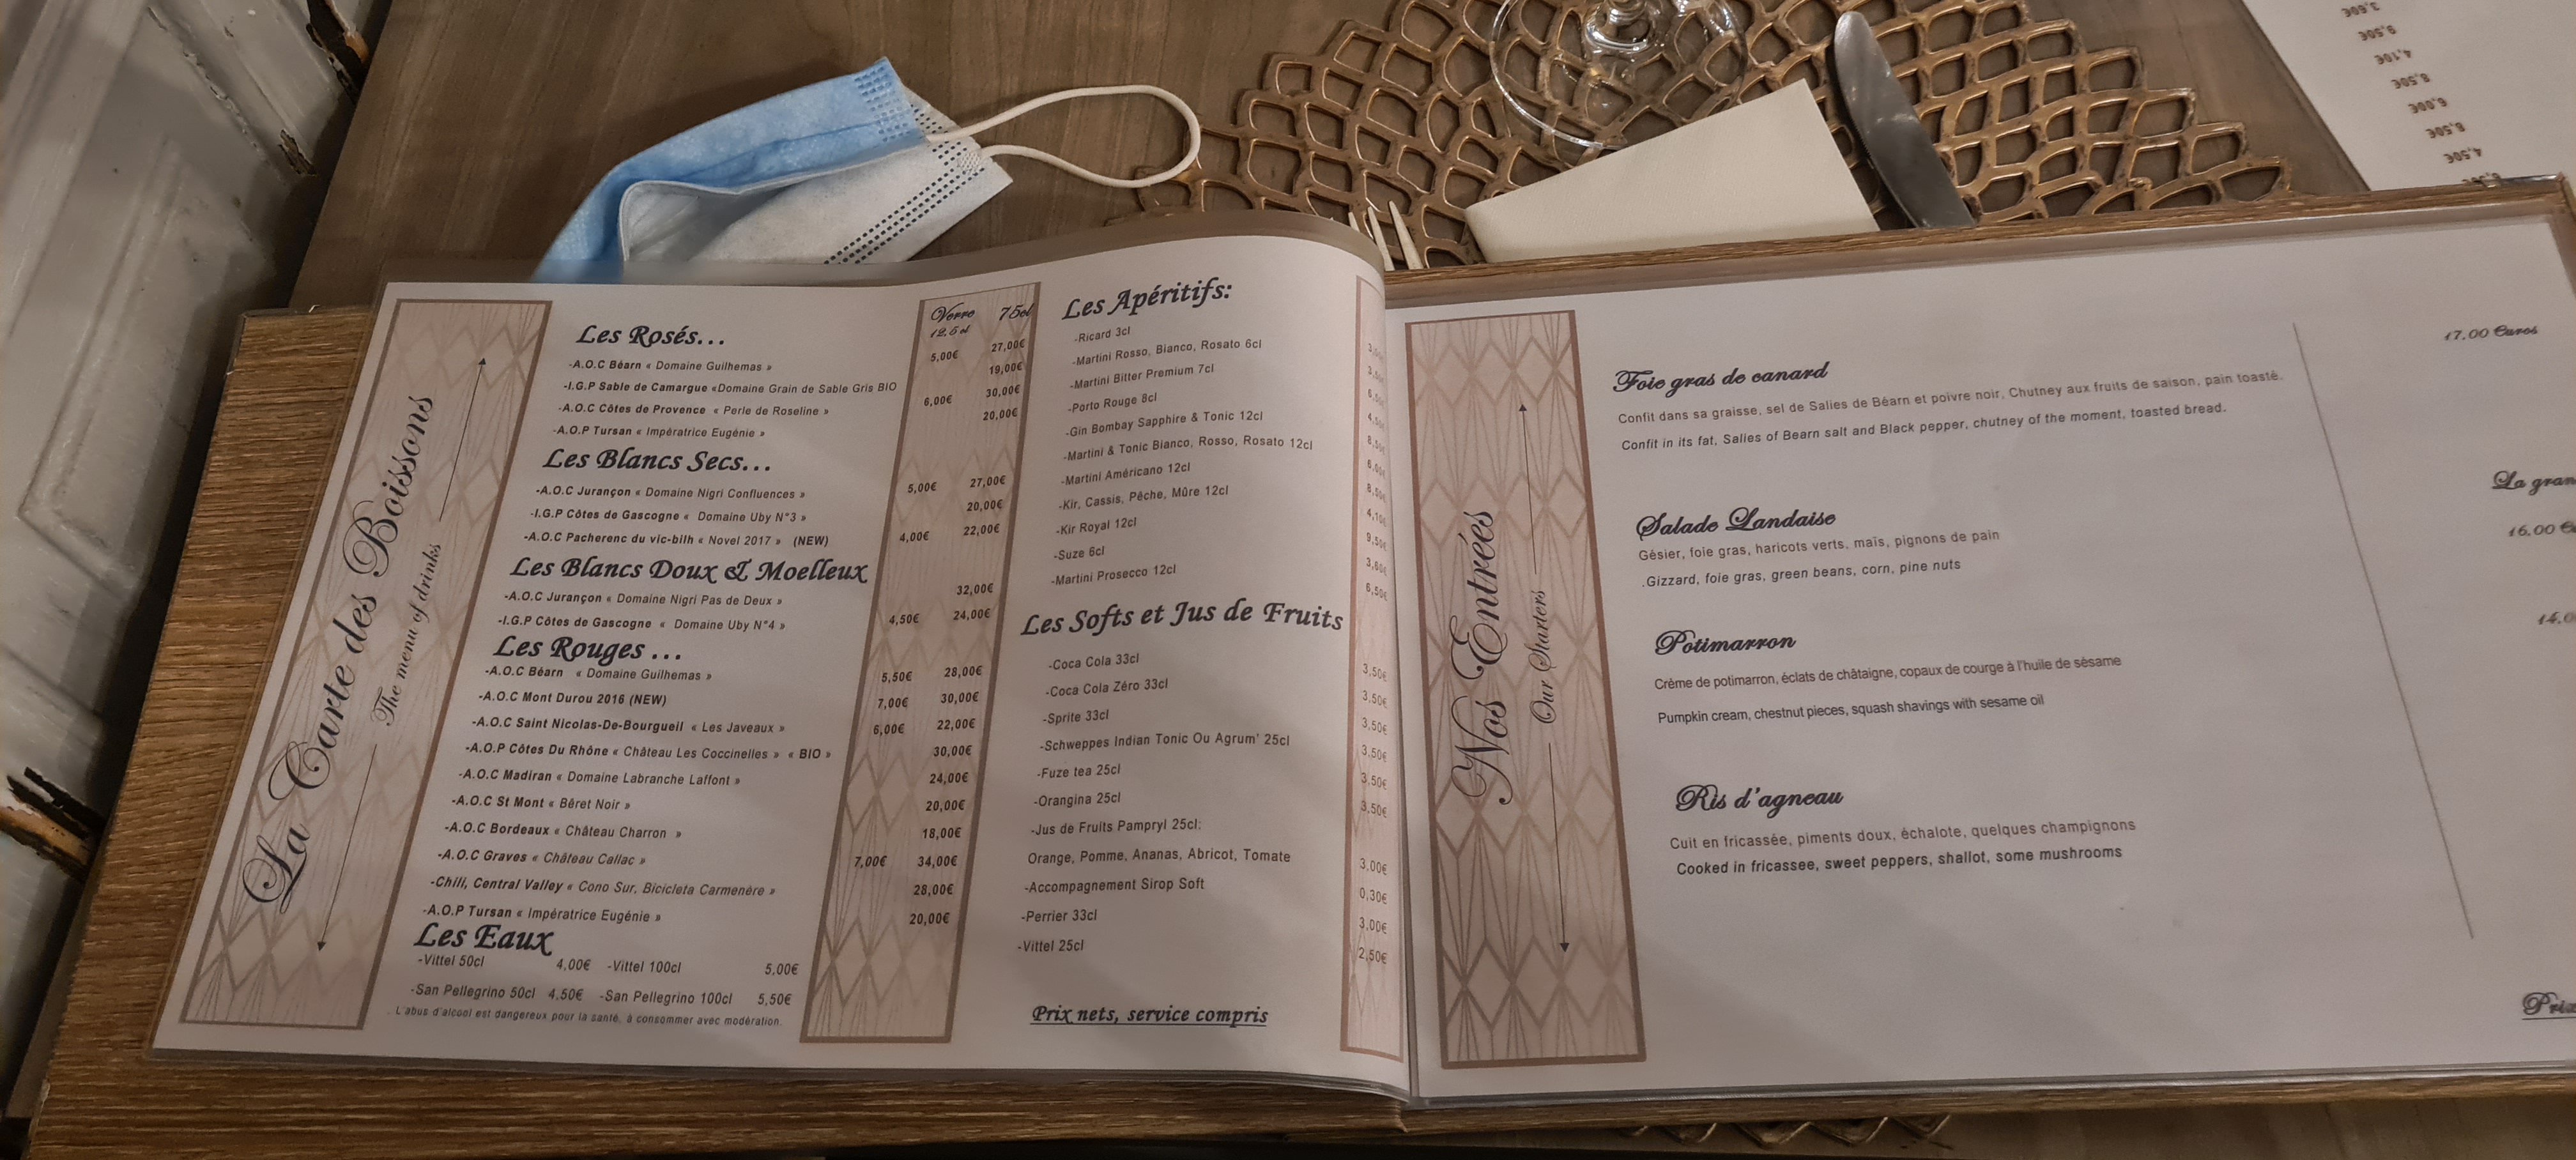 La Carte des Boissons
The menu of drinks
Verre 75cl
12,5 cl
Les Rosés...
-A.O.C Béarn « Domaine Guilhemas » 5,00€ 27,00€
-I.G.P Sable de Camargue «Domaine Grain de Sable Gris BIO 19,00€
-A.O.C Côtes de Provence « Perle de Roseline » 6,00€ 30,00€
-A.O.P Tursan « Impératrice Eugénie » 20,00€
Les Blancs Secs...
-A.O.C Jurançon « Domaine Nigri Confluences » 5,00€ 27,00€
-I.G.P Côtes de Gascogne « Domaine Uby N°3 » 20,00€
-A.O.C Pacherenc du vic-bilh « Novel 2017 » (NEW) 4,00€ 22,00€
Les Blancs Doux & Moelleux
-A.O.C Jurançon « Domaine Nigri Pas de Deux » 32,00€
-I.G.P Côtes de Gascogne « Domaine Uby N°4 » 4,50€ 24,00€
Les Rouges ...
-A.O.C Béarn « Domaine Guilhemas » 5,50€ 28,00€
-A.O.C Mont Durou 2016 (NEW) 7,00€ 30,00€
-A.O.C Saint Nicolas-De-Bourgueil « Les Javeaux » 6,00€ 22,00€
-A.O.P Côtes Du Rhône « Château Les Coccinelles » « BIO » 30,00€
-A.O.C Madiran « Domaine Labranche Laffont » 24,00€
-A.O.C St Mont « Béret Noir » 20,00€
-A.O.C Bordeaux « Château Charron » 18,00€
-A.O.C Graves « Château Callac » 7,00€ 34,00€
-Chili, Central Valley « Cono Sur, Bicicleta Carmenère » 28,00€
-A.O.P Tursan « Impératrice Eugénie » 20,00€
Les Eaux
-Vittel 50cl 4,00€ -Vittel 100cl 5,00€
-San Pellegrino 50cl 4,50€ -San Pellegrino 100cl 5,50€
L'abus d'alcool est dangereux pour la santé, à consommer avec modération.
Les Apéritifs:
-Ricard 3cl
-Martini Rosso, Bianco, Rosato 6cl
-Martini Bitter Premium 7cl
-Porto Rouge 8cl
-Gin Bombay Sapphire & Tonic 12cl
-Martini & Tonic Bianco, Rosso, Rosato 12cl
-Martini Américano 12cl
-Kir, Cassis, Pêche, Mûre 12cl
-Kir Royal 12cl
-Suze 6cl
-Martini Prosecco 12cl
Les Softs et Jus de Fruits
-Coca Cola 33cl 3,50€
-Coca Cola Zéro 33cl 3,50€
-Sprite 33cl 3,50€
-Schweppes Indian Tonic Ou Agrum' 25cl 3,50€
-Fuze tea 25cl 3,50€
-Orangina 25cl 3,50€
-Jus de Fruits Pampryl 25cl:
Orange, Pomme, Ananas, Abricot, Tomate 3,00€
-Accompagnement Sirop Soft 0,30€
-Perrier 33cl 3,00€
-Vittel 25cl 2,50€
Prix nets, service compris
Nos Entrées
Our Starters
17,00 Euros
Foie gras de canard
Confit dans sa graisse, sel de Salies de Béarn et poivre noir, Chutney aux fruits de saison, pain toasté.
Confit in its fat, Salies of Bearn salt and Black pepper, chutney of the moment, toasted bread.
La gran
16,00
Salade Landaise
Gésier, foie gras, haricots verts, maïs, pignons de pain
.Gizzard, foie gras, green beans, corn, pine nuts
Potimarron
Crème de potimarron, éclats de châtaigne, copaux de courge à l'huile de sésame
Pumpkin cream, chestnut pieces, squash shavings with sesame oil
Ris d'agneau
Cuit en fricassée, piments doux, échalote, quelques champignons
Cooked in fricassee, sweet peppers, shallot, some mushrooms
3,60€
9,50€
4,10€
8,50€
6,00€
8,50€
4,50€